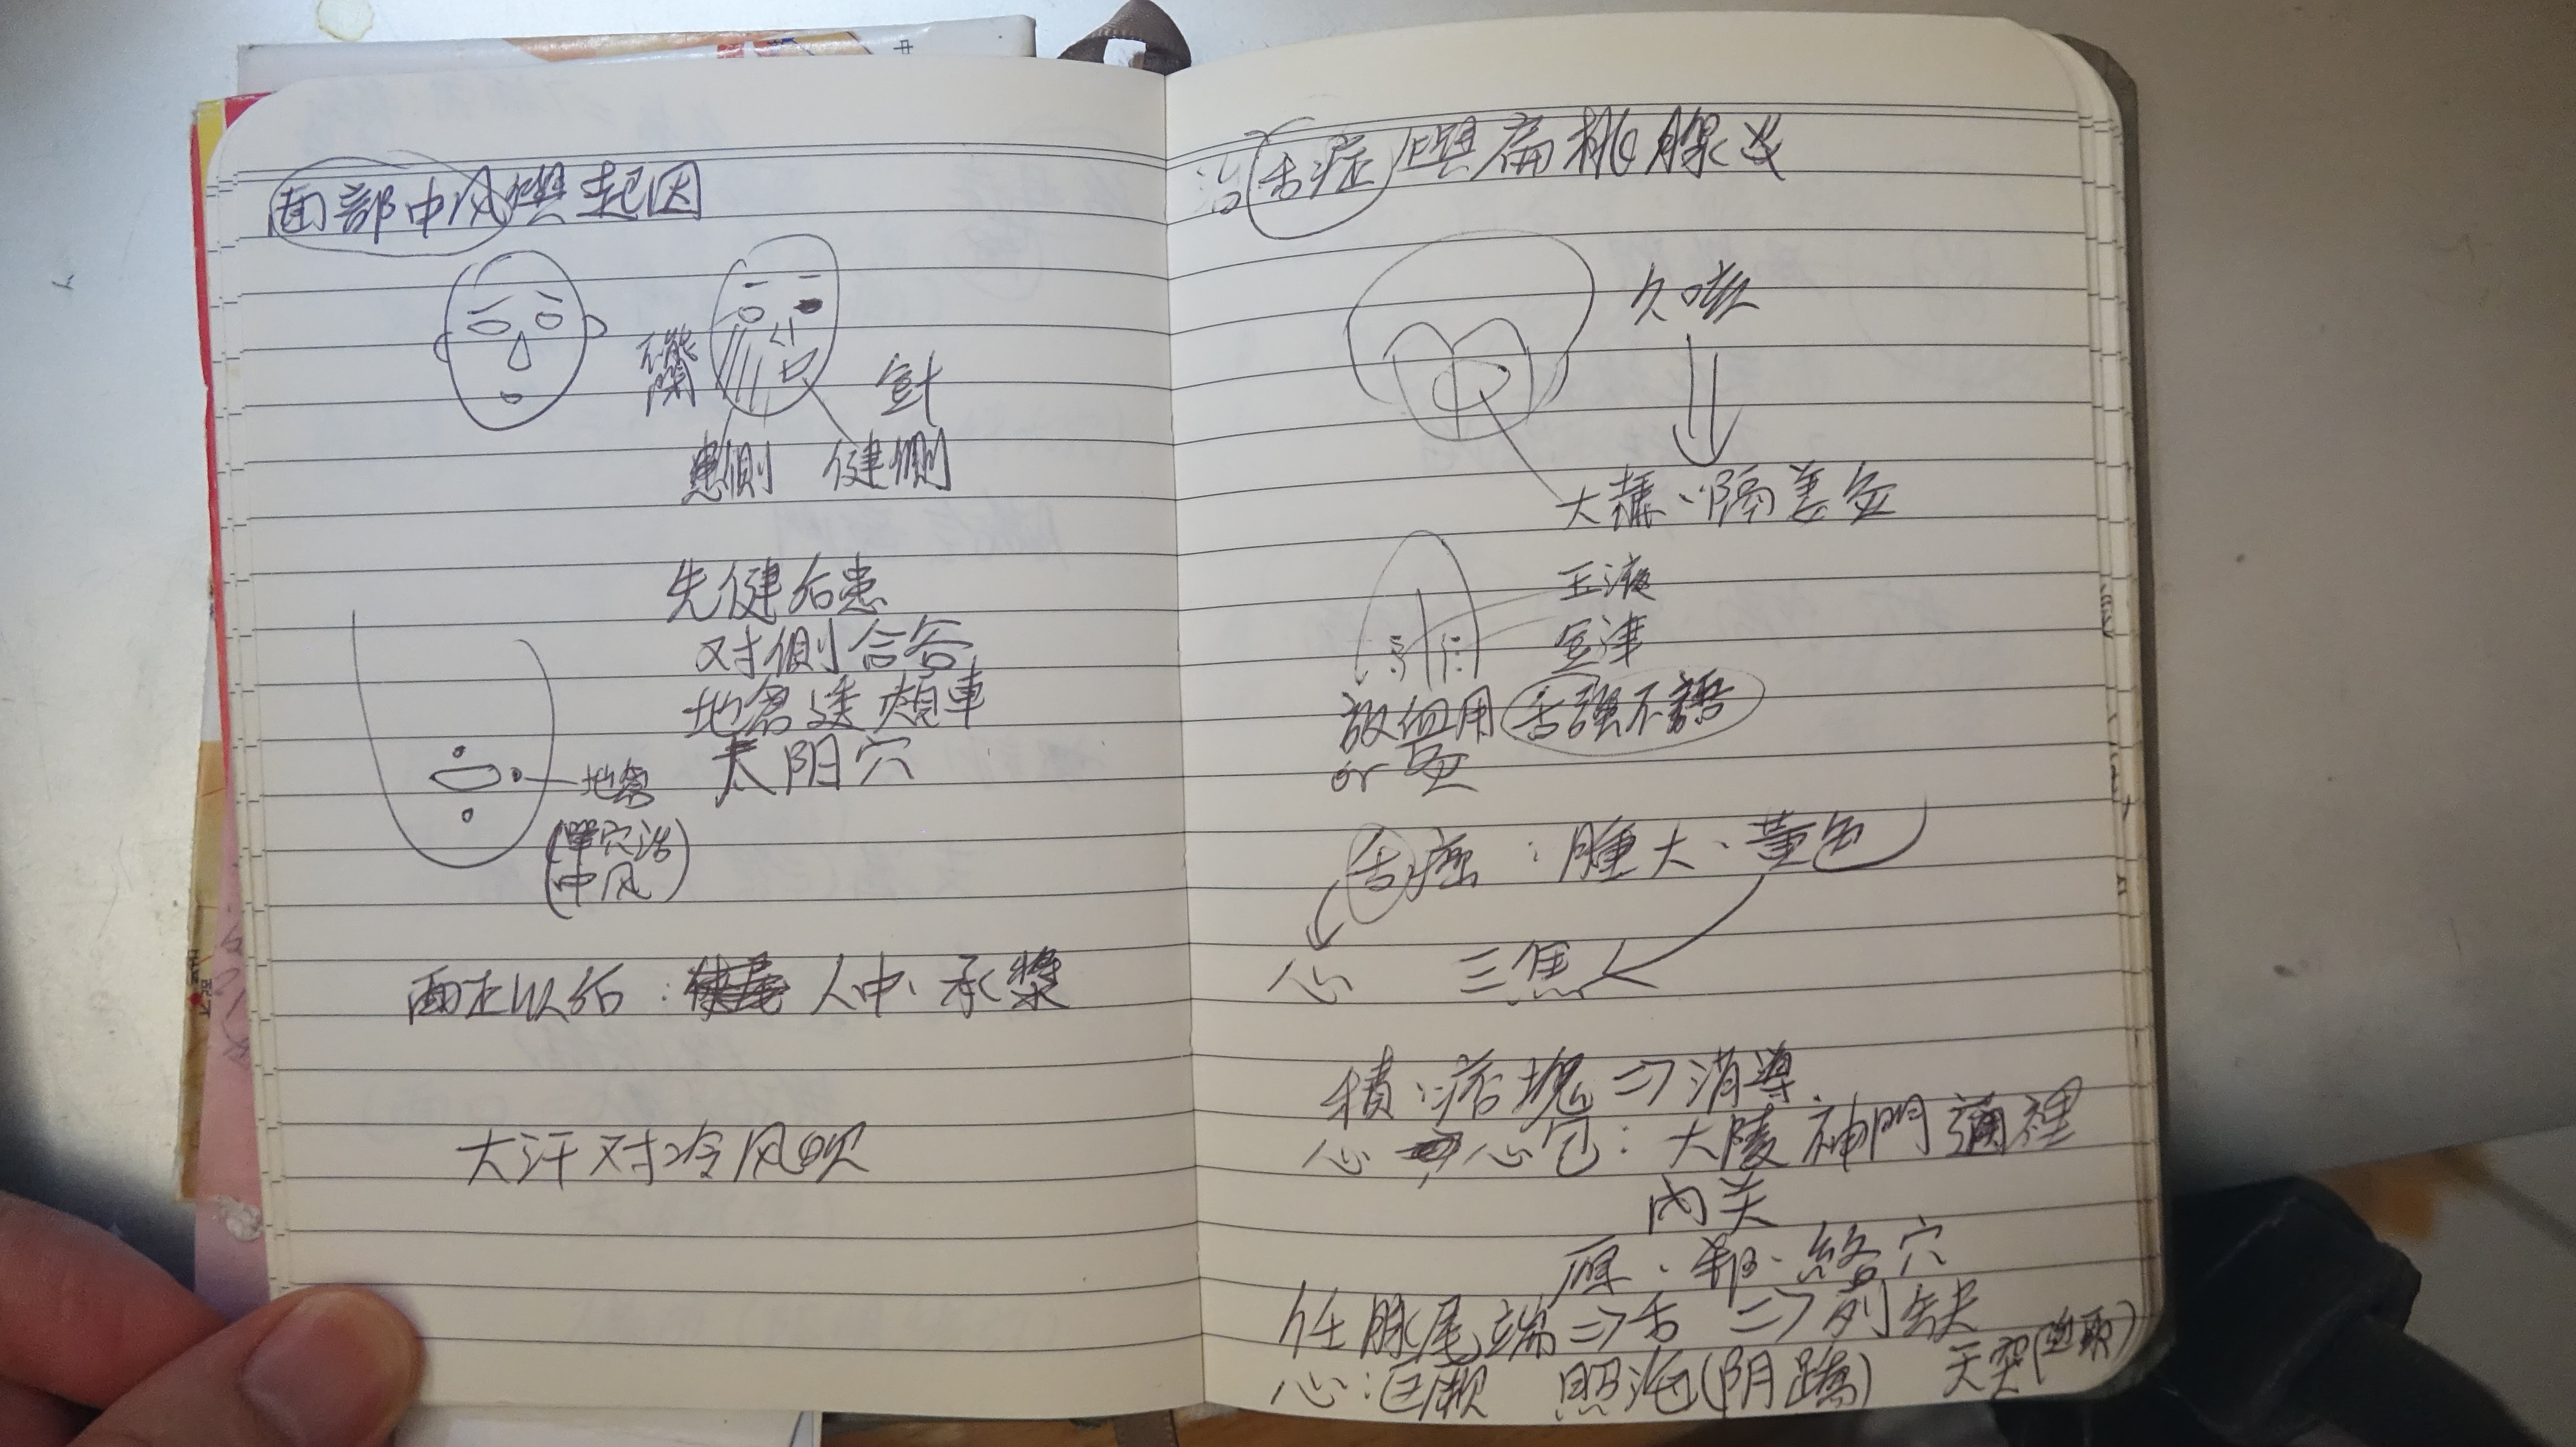 面部中风與起因
不能
閉
針
患側 健側
先健后患
对側合谷
地倉透頰車
太阳穴
地倉
(單穴治
中风)
面正以后: 人中、承漿
大汗对冷风吹
治舌症與扁桃腺炎
久咳
大 、隔姜灸
玉液
金津
放血用 舌強不語
or
舌症:腫大、黃色
心 三焦
積、痞塊⇒消導
心 心包:大陵 神門 通里
内关
原、郄、絡穴
任脉尾端⇒舌⇒列缺
心:巨厥 照海(阴蹻) 天突